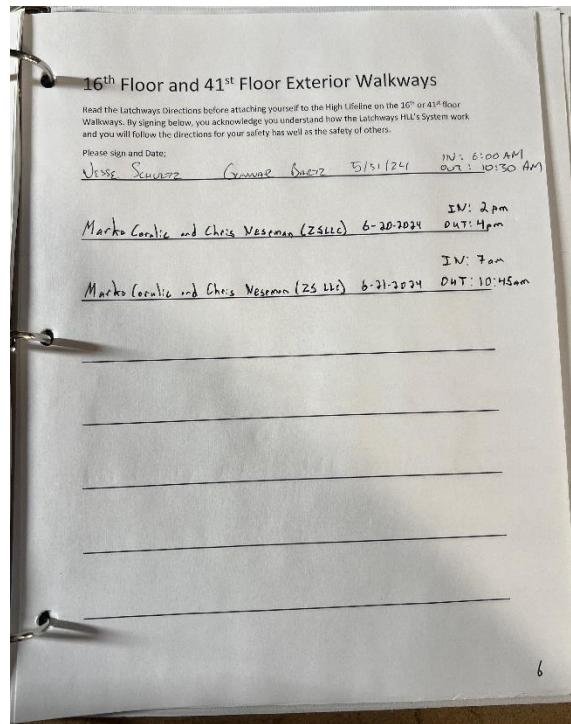 16th Floor and 41st Floor Exterior Walkways
Read the Latchways Directions before attaching yourself to the High Lifeline on the 16th or 41st floor
Walkways. By signing below, you acknowledge you understand how the Latchways HLL's System work
and you will follow the directions for your safety has well as the safety of others.
Please sign and Date;
IN: 6:00 AM
Schultz 5/31/24 OUT: 10:30 AM
IN: 2pm
Marko and Chris Neseman (ZSLLC) 6-20-2024 OUT: 4pm
IN: 7am
Marko and Chris Neseman (ZS LLC) 6-21-2024 OUT: 10:45am
6